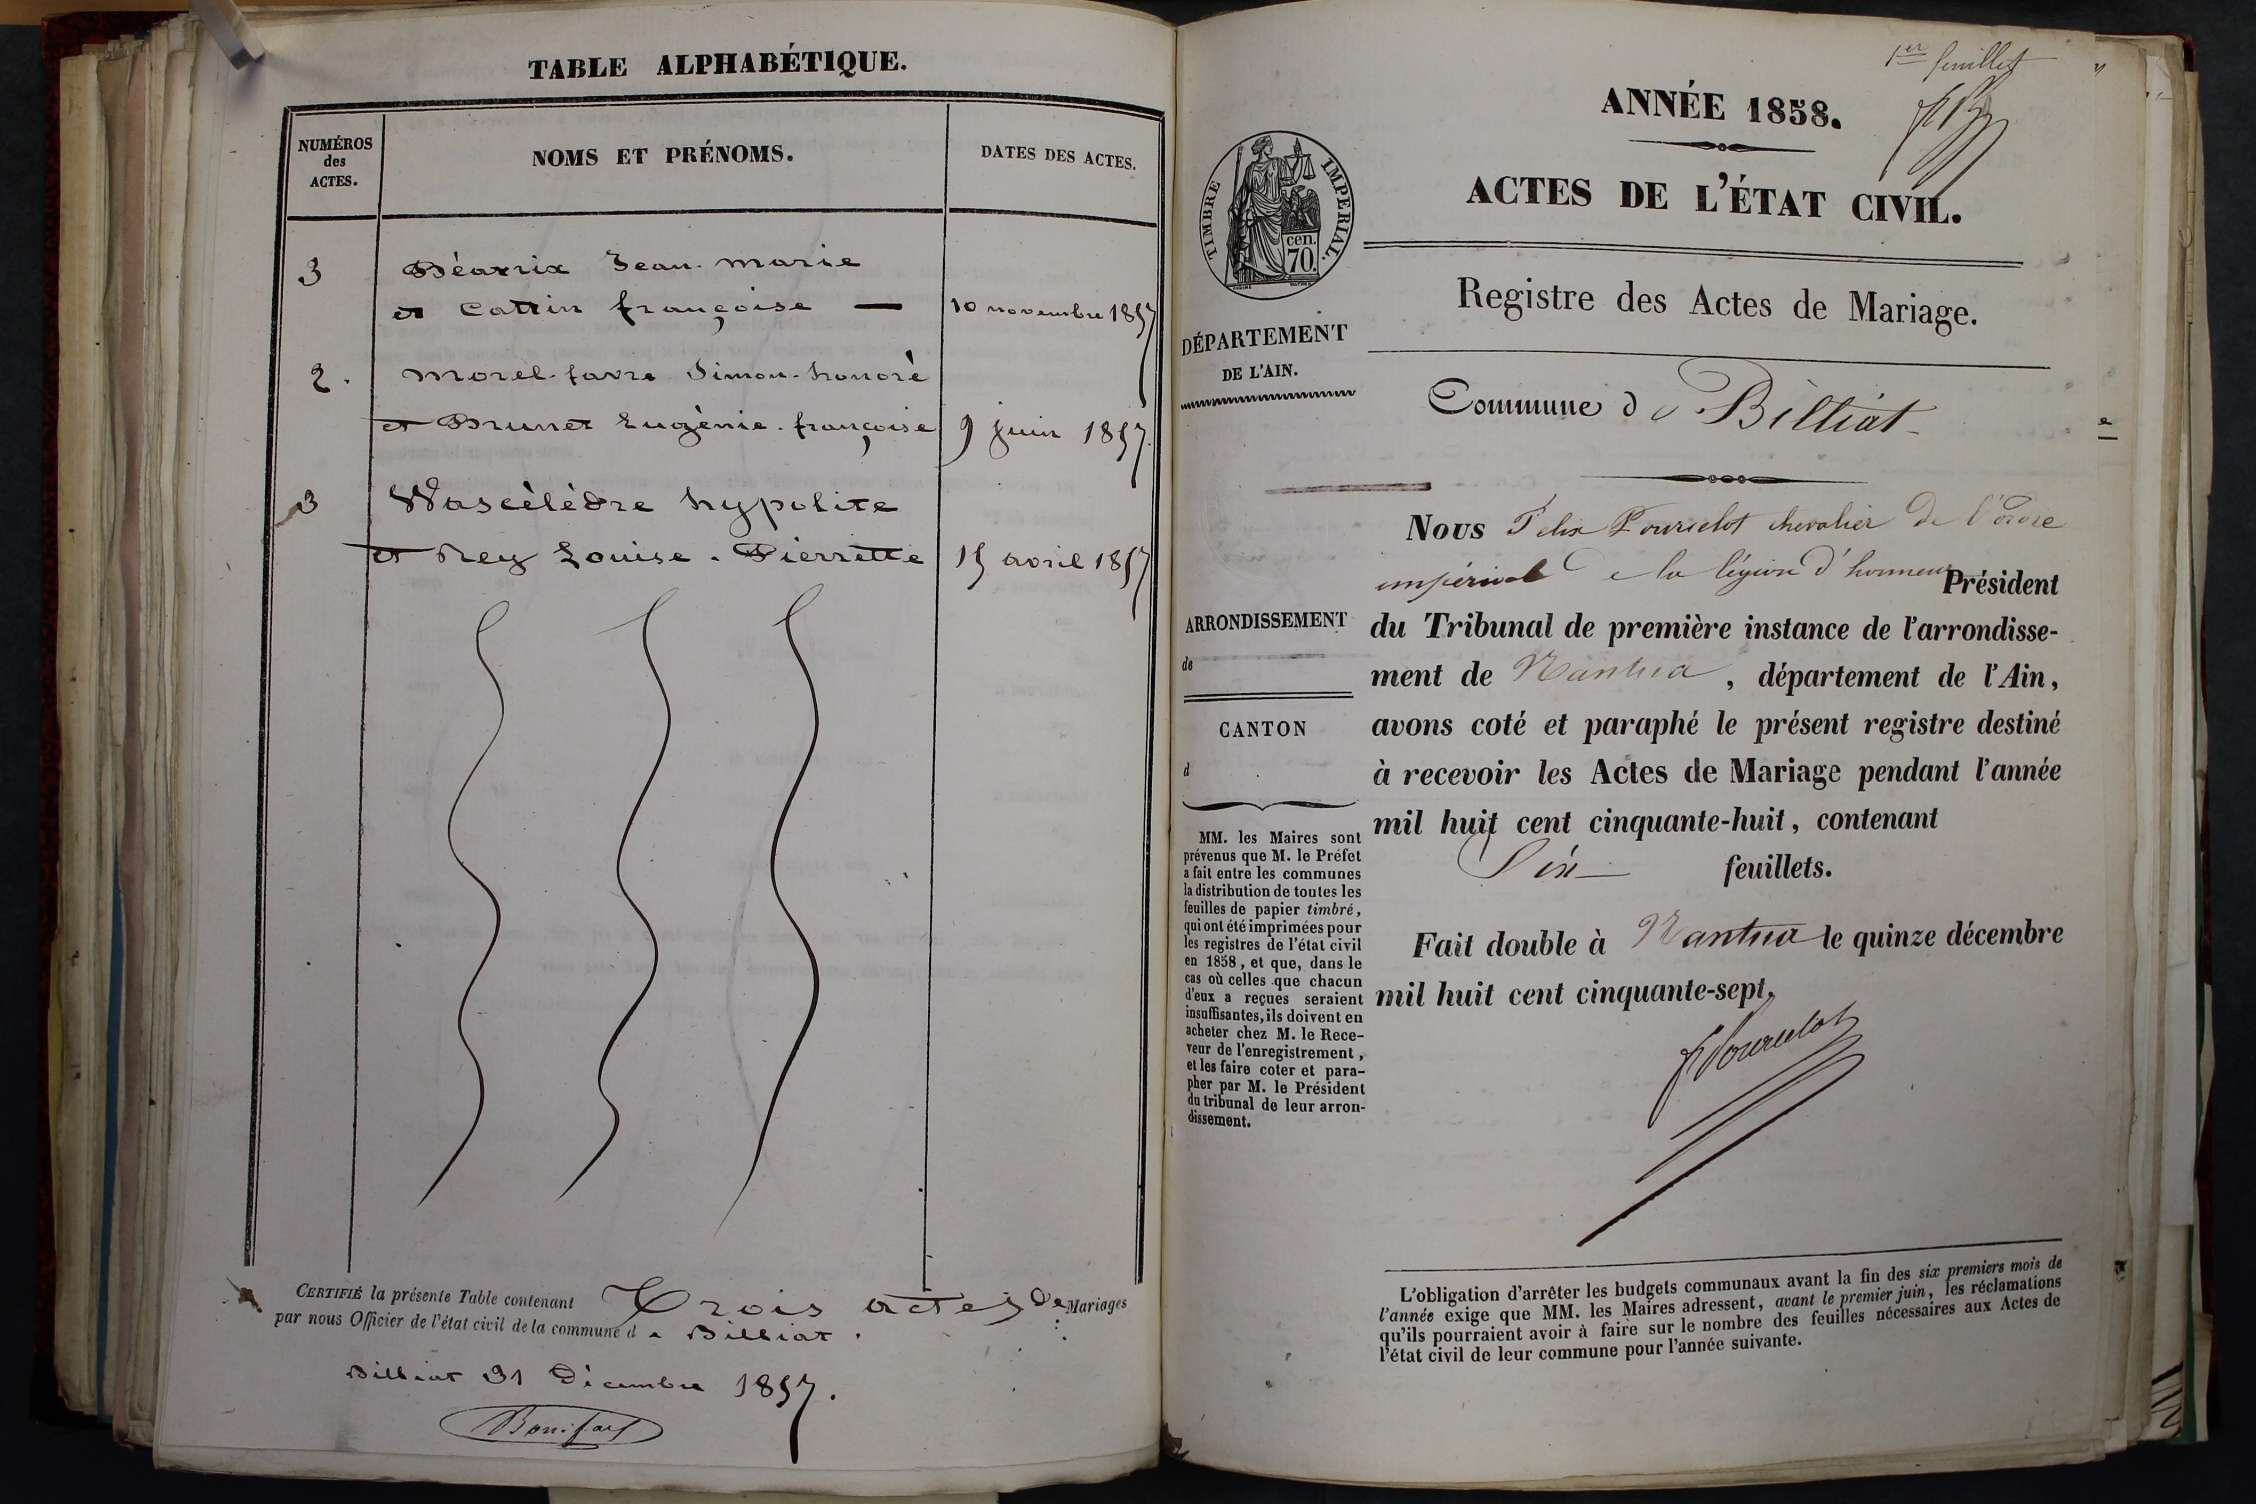 TABLE ALPHABÉTIQUE.
NUMÉROS
des
ACTES.
NOMS ET PRÉNOMS.
DATES DES ACTES.
3 Béatrix Jean-marie
et Cattin françoise — 10 novembre 1857
2. Morel-favre Simon-honoré
et Brunet Eugénie-françoise 9 juin 1857.
3 Wascélèdre hypolite
et Rey Louise-Pierrette 15 avril 1857
CERTIFIÉ la présente Table contenant Trois actes de Mariages
par nous Officier de l'état civil de la commune d e Billiat.
Billiat 31 Décembre 1857.
1er feuillet
ANNÉE 1858.
ACTES DE L'ÉTAT CIVIL.
TIMBRE IMPERIAL.
cen.
70.
Registre des Actes de Mariage.
DÉPARTEMENT
DE L'AIN.
Commune d e Billiat
Nous Félix Pourcelot chevalier de l'ordre
impérial de la légion d'honneur Président
du Tribunal de première instance de l'arrondisse-
ment de Nantua, département de l'Ain,
avons coté et paraphé le présent registre destiné
à recevoir les Actes de Mariage pendant l'année
mil huit cent cinquante-huit, contenant
Six feuillets.
Fait double à Nantua le quinze décembre
mil huit cent cinquante-sept.
F Pourcelot
ARRONDISSEMENT
de
CANTON
d
MM. les Maires sont
prévenus que M. le Préfet
a fait entre les communes
la distribution de toutes les
feuilles de papier timbré,
qui ont été imprimées pour
les registres de l'état civil
en 1858, et que, dans le
cas où celles que chacun
d'eux a reçues seraient
insuffisantes, ils doivent en
acheter chez M. le Rece-
veur de l'enregistrement,
et les faire coter et para-
pher par M. le Président
du tribunal de leur arron-
dissement.
L'obligation d'arrêter les budgets communaux avant la fin des six premiers mois de
l'année exige que MM. les Maires adressent, avant le premier juin, les réclamations
qu'ils pourraient avoir à faire sur le nombre des feuilles nécessaires aux Actes de
l'état civil de leur commune pour l'année suivante.